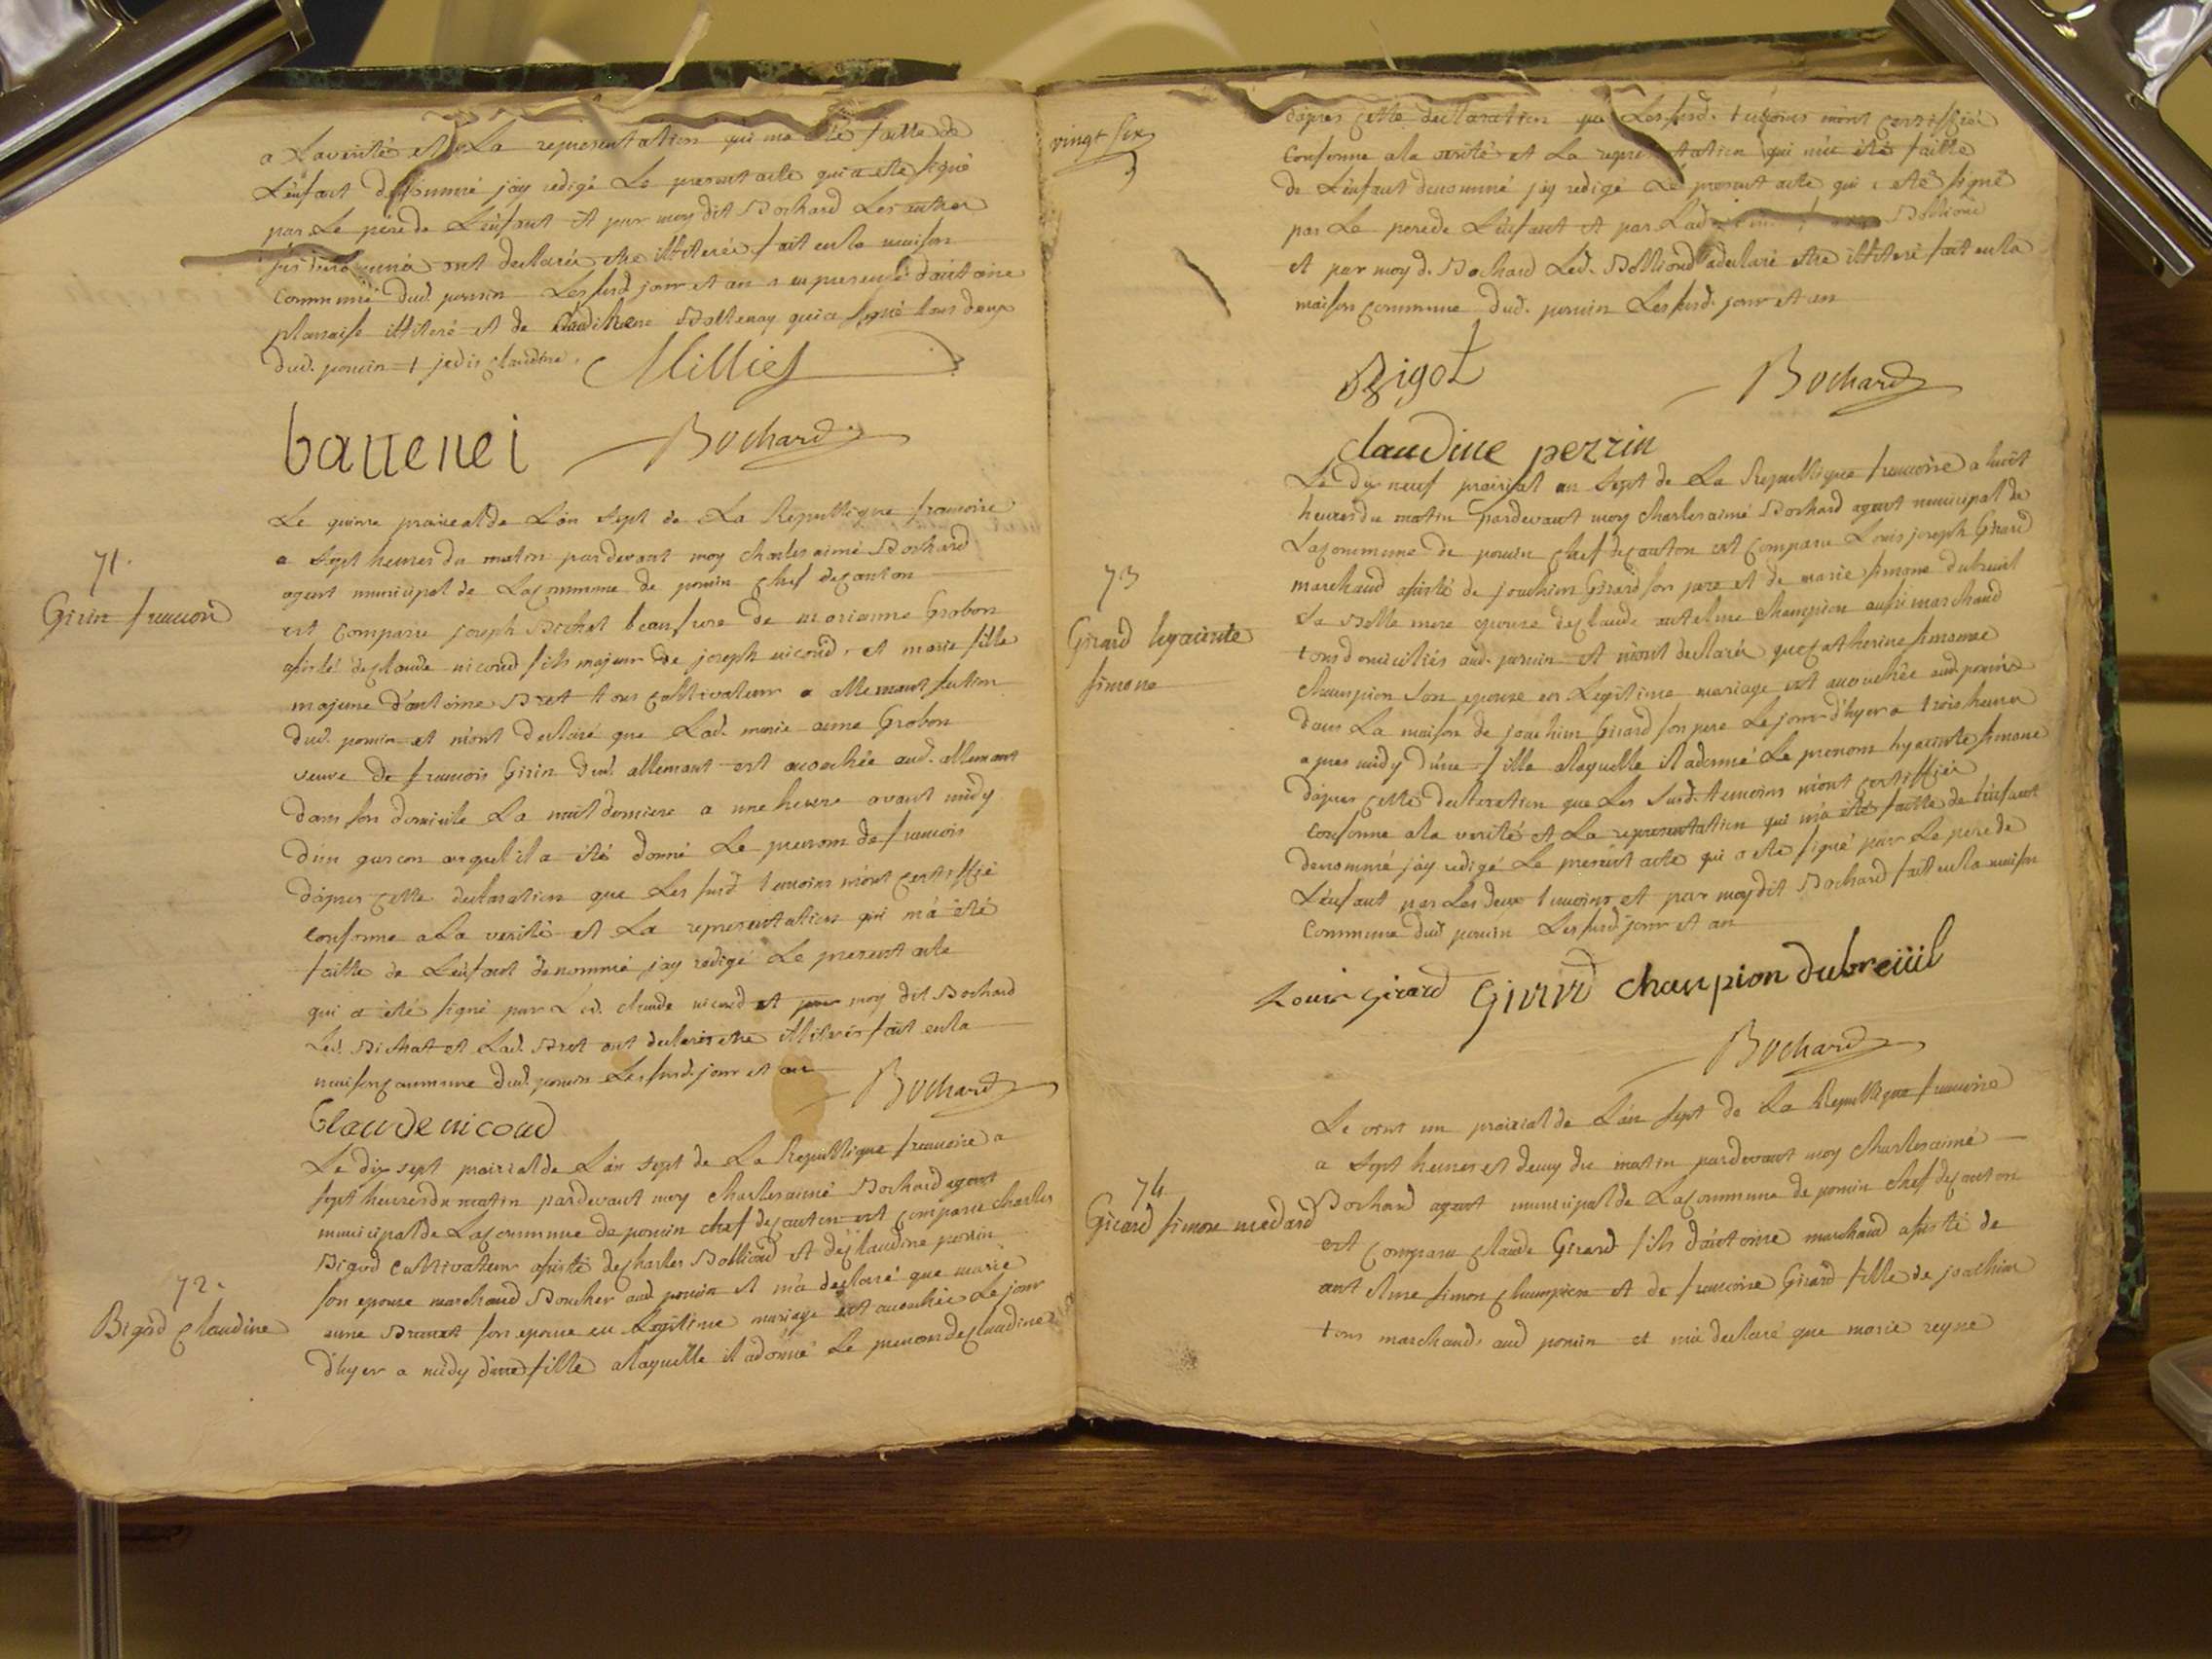 a La verité et La representation qui ma été faitte de
L'enfant denommé j'ay redigé Le present acte qui a eté signé
par Le pere de L'enfant et par moy dit Bochard Les autres
ont declarés etre illiterés fait en la maison
commune dud. poncin Les susd. jour et an en presence d'antoine
illiteré et de qui a signé tous deux
dud. poncin + je dis claudine.
Millies
battenei
Bochard
71.
Girin francois
Le quinze prairial de L'an sept de La Republique francoise
a sept heures du matin pardevant moy charles aimé Bochard
agent municipal de La commune de poncin chef de canton
est comparu joseph Bichat beaufrere de marianne Grobon
assisté de claude nicoud fils majeur de joseph nicoud et marie fille
majeure d'antoine Bret tous cultivateurs a allemant section
dud. poncin et m'ont declaré que Lad. marie anne Grobon
veuve de francois Girin dud. allemant est acouchée aud. allemant
dans son domicile La nuit derniere a une heure avant midy
d'un garcon auquel il a été donné Le prenom de francois
d'apres cette declaration que Les susd. temoins m'ont certiffié
conforme a La verité et La representation qui m'a été
faitte de L'enfant denommé j'ay redigé Le present acte
qui a été signé par Led. claude nicoud et par moy dit Bochard
Led. Bichat et Lad. Bret ont declarés etre illiterés fait en la
maison commune dud. poncin Les susd. jour et an
Bochard
Claude nicoud
Le dix sept prairial de L'an sept de La Republique francoise a
sept heures du matin pardevant moy charles aimé Bochard agent
municipal de La commune de poncin chef de canton est comparu charles
72.
Bigod claudine
Bigod cultivateur assisté de charles Bolliond et de claudine perrin
son epouse marchand Boucher aud. poncin et m'a declaré que marie
anne son epouse en Legitime mariage est acouchée Le jour
d'hyer a midy d'une fille a laquelle il a donné Le prenom de claudine
vingt six
d'apres cette declaration que Les susd. temoins m'ont certiffiés
conforme a la verité et La representation qui m'a été faitte
de L'enfant denommé j'ay redigé Le present acte qui a eté signé
par Le pere de L'enfant et par Lad.
et par moy d. Bochard Led. Bolliond a declaré etre illiteré fait en la
maison commune dud. poncin Les susd. jour et an
Bigot
Bochard
claudine perrin
73
Girard hyacinte
simone
Le dix neuf prairial an sept de La Republique francoise a huit
heures du matin pardevant moy charles aimé Bochard agent municipal de
La commune de poncin chef de canton est comparu Louis joseph Girard
marchand assisté de joachim Girard son pere et de marie simone dubreuil
sa Belle mere epouse de claude antelme champion aussi marchand
tous domiciliés aud. poncin et m'ont declarés que catherine simonne
champion son epouse en Legitime mariage est acouchée aud. poncin
dans La maison de joachim Girard son pere Le jour d'hyer a trois heures
apres midy d'une fille a laquelle il a donné Le prenom hyacinte simone
d'apres cette declaration que Les susd. temoins m'ont certiffiés
conforme a la verité et La representation qui m'a été faitte de L'enfant
denommé j'ay redigé Le present acte qui a eté signé par Le pere de
L'enfant par Les deux temoins et par moy dit Bochard fait en la maison
commune dud. poncin Les susd. jour et an
Louis Girard Girard champion dubreüil
Bochard
74
Girard simon medard
Le vint un prairial de L'an sept de La Republique francoise
a sept heures et demy du matin pardevant moy charles aimé
Bochard agent municipal de La commune de poncin chef de canton
est comparu claude Girard fils d'antoine marchand assisté de
antelme simon champion et de francoise Girard fille de joachim
tous marchands aud. poncin et m'a declaré que marie reyne